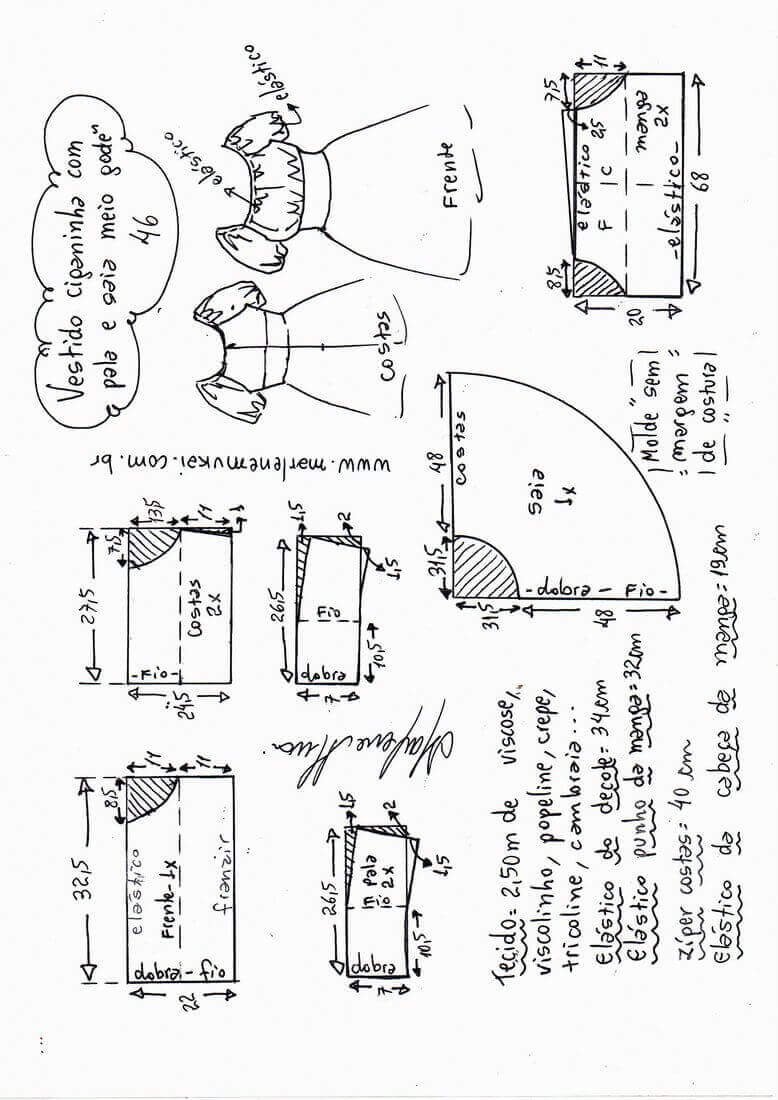 Vestido ciganinha com
pala e saia meio godê
46
elástico
elástico
Frente
costas
www.marlenemukai.com.br
7,5
11
2,5
elástico
F | C
manga
2x
-elástico-
8,5
20
68
32,5
8,5
11
11
elástico
Frente-1x
franzir
dobra-fio
22
27,5
7,5
13,5
11
1
-Fio-
costas
2x
24,5
26,5
1,5
2
1,5
Fio
dobra
10,5
7
26,5
1,5
2
1,5
pala
Fio 2x
dobra
10,5
7
48
costas
31,5
saia
1x
31,5
-dobra-Fio-
48
Molde "sem
margem =
de costura
Tecido= 2,50m de viscose,
viscolinho, popeline, crepe,
tricoline, cambraia...
Elástico do decote= 34cm
Elástico punho da manga=32cm
zíper costas= 40cm
Elástico da cabeça da manga=19cm